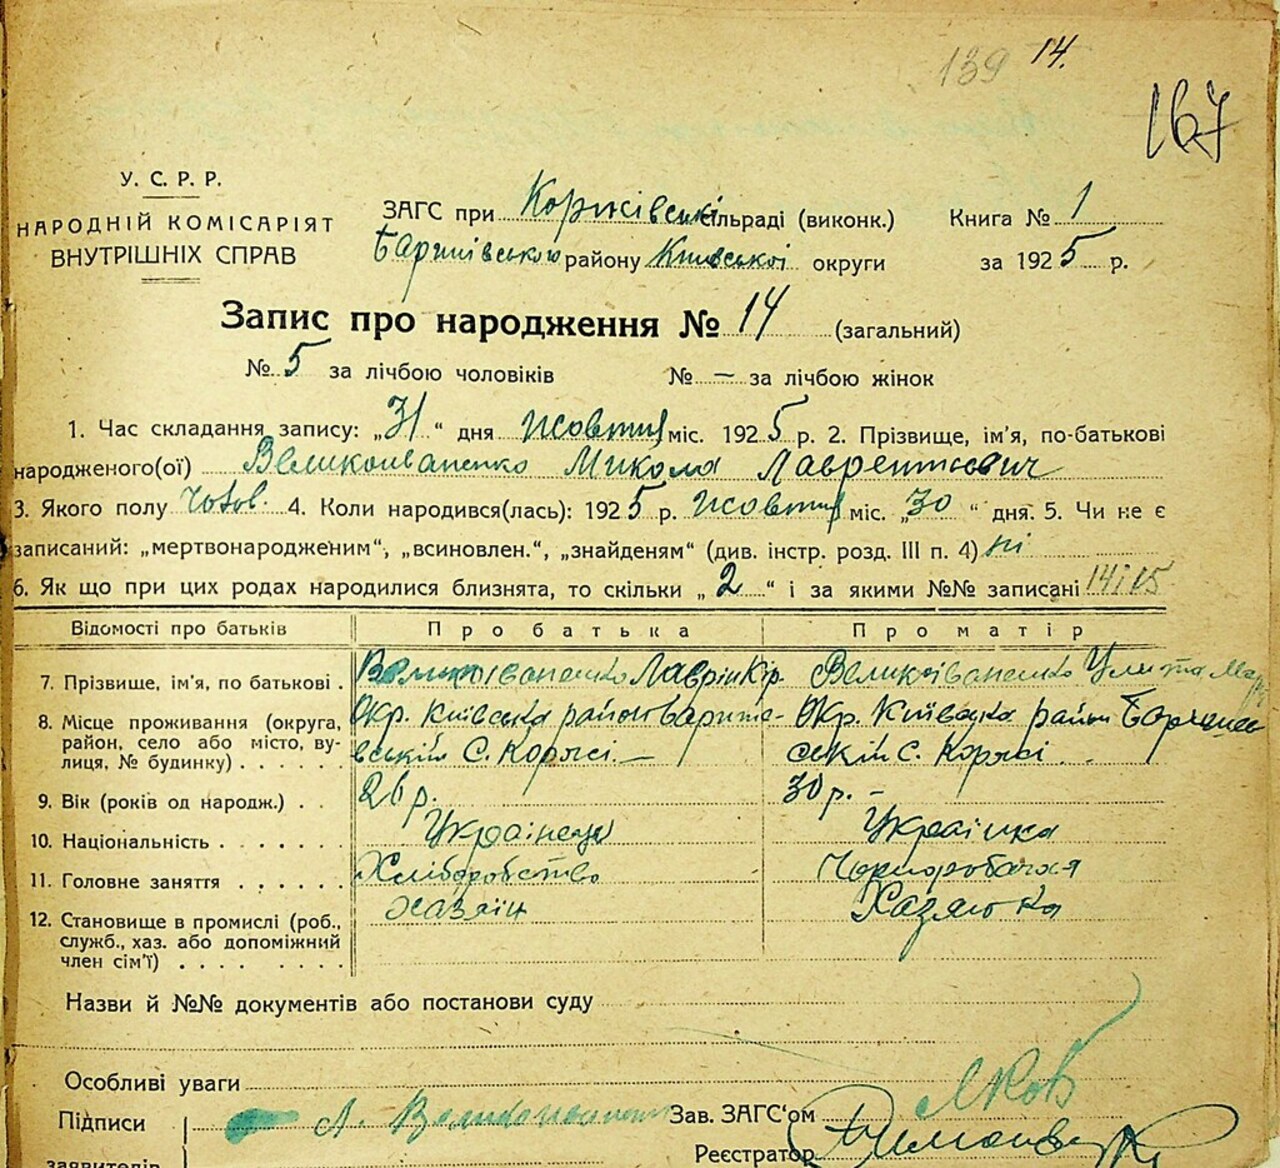 139 14.
167
У. С. Р. Р.
НАРОДНІЙ КОМІСАРІЯТ
ВНУТРІШНІХ СПРАВ
ЗАГС при Коржівській сільраді (виконк.) Книга № 1
Баришівського району Київської округи за 1925 р.
Запис про народження № 14 (загальний)
№ 5 за лічбою чоловіків № — за лічбою жінок
1. Час складання запису: „31“ дня Жовтня міс. 1925 р. 2. Прізвище, ім’я, по-батькові
народженого(ої) Великоіваненко Микола Лаврентієвич
3. Якого полу чолов. 4. Коли народився(лась): 1925 р. Жовтня міс. „30“ дня. 5. Чи не є
записаний: „мертвонародженим“, „всиновлен.“, „знайденям“ (див. інстр. розд. III п. 4) ні
6. Як що при цих родах народилися близнята, то скільки „2“ і за якими №№ записані 14 і 15
Відомості про батьків Про батька Про матір
7. Прізвище, ім’я, по батькові . Великоіваненко Лаврін Кір. Великоіваненко Улита
8. Місце проживання (округа, район, село або місто, вулиця, № будинку) . . . . . Окр. Київська район Барише-
вський С. Коржі. — Окр. Київська район
ський С. Коржі
9. Вік (років од народж.) . . 26 р. 30 р. –
10. Національність . . . . . . . Українець Українка
11. Головне заняття . . . . . . Хліборобство Чорноробочая
12. Становище в промислі (роб., Хазяїн Хазяйка
служб., хаз. або допоміжний
член сім’ї) . . . . . . . .
Назви й №№ документів або постанови суду
Особливі уваги
Підписи Л. Великоіваненко Зав. ЗАГС‘ом
заявителів Реєстратор